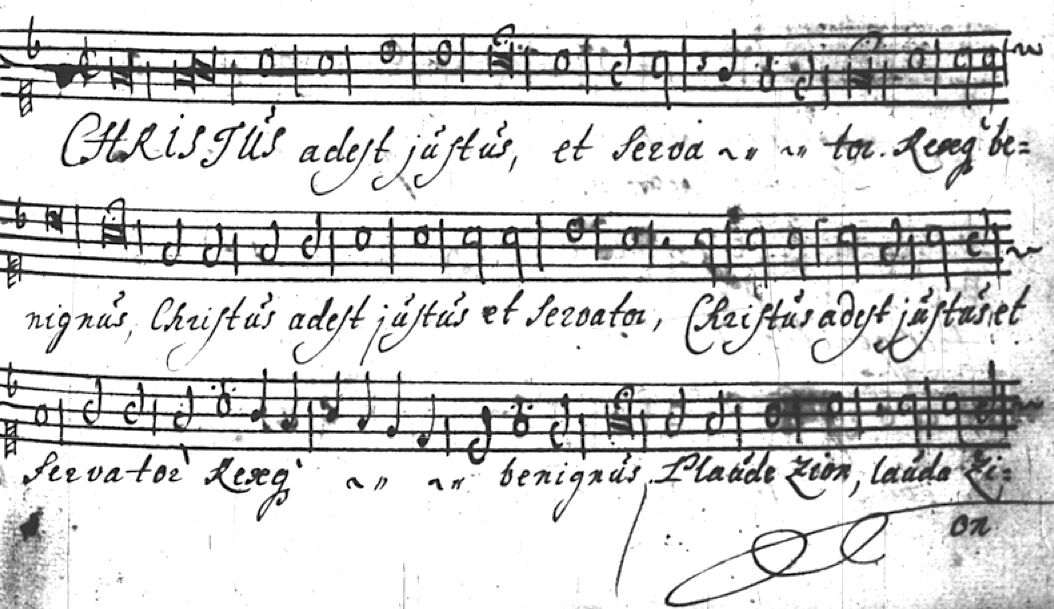 CHRISTUS adest justus, et serva ~ „ ~ „ tor. Rexq̀ be=
nignus, Christus adest justus et servator, Christus adest justus, et
servator Rexq̀ ~ „ ~ „ benignus. Plaude Zion, lauda Zi=
on